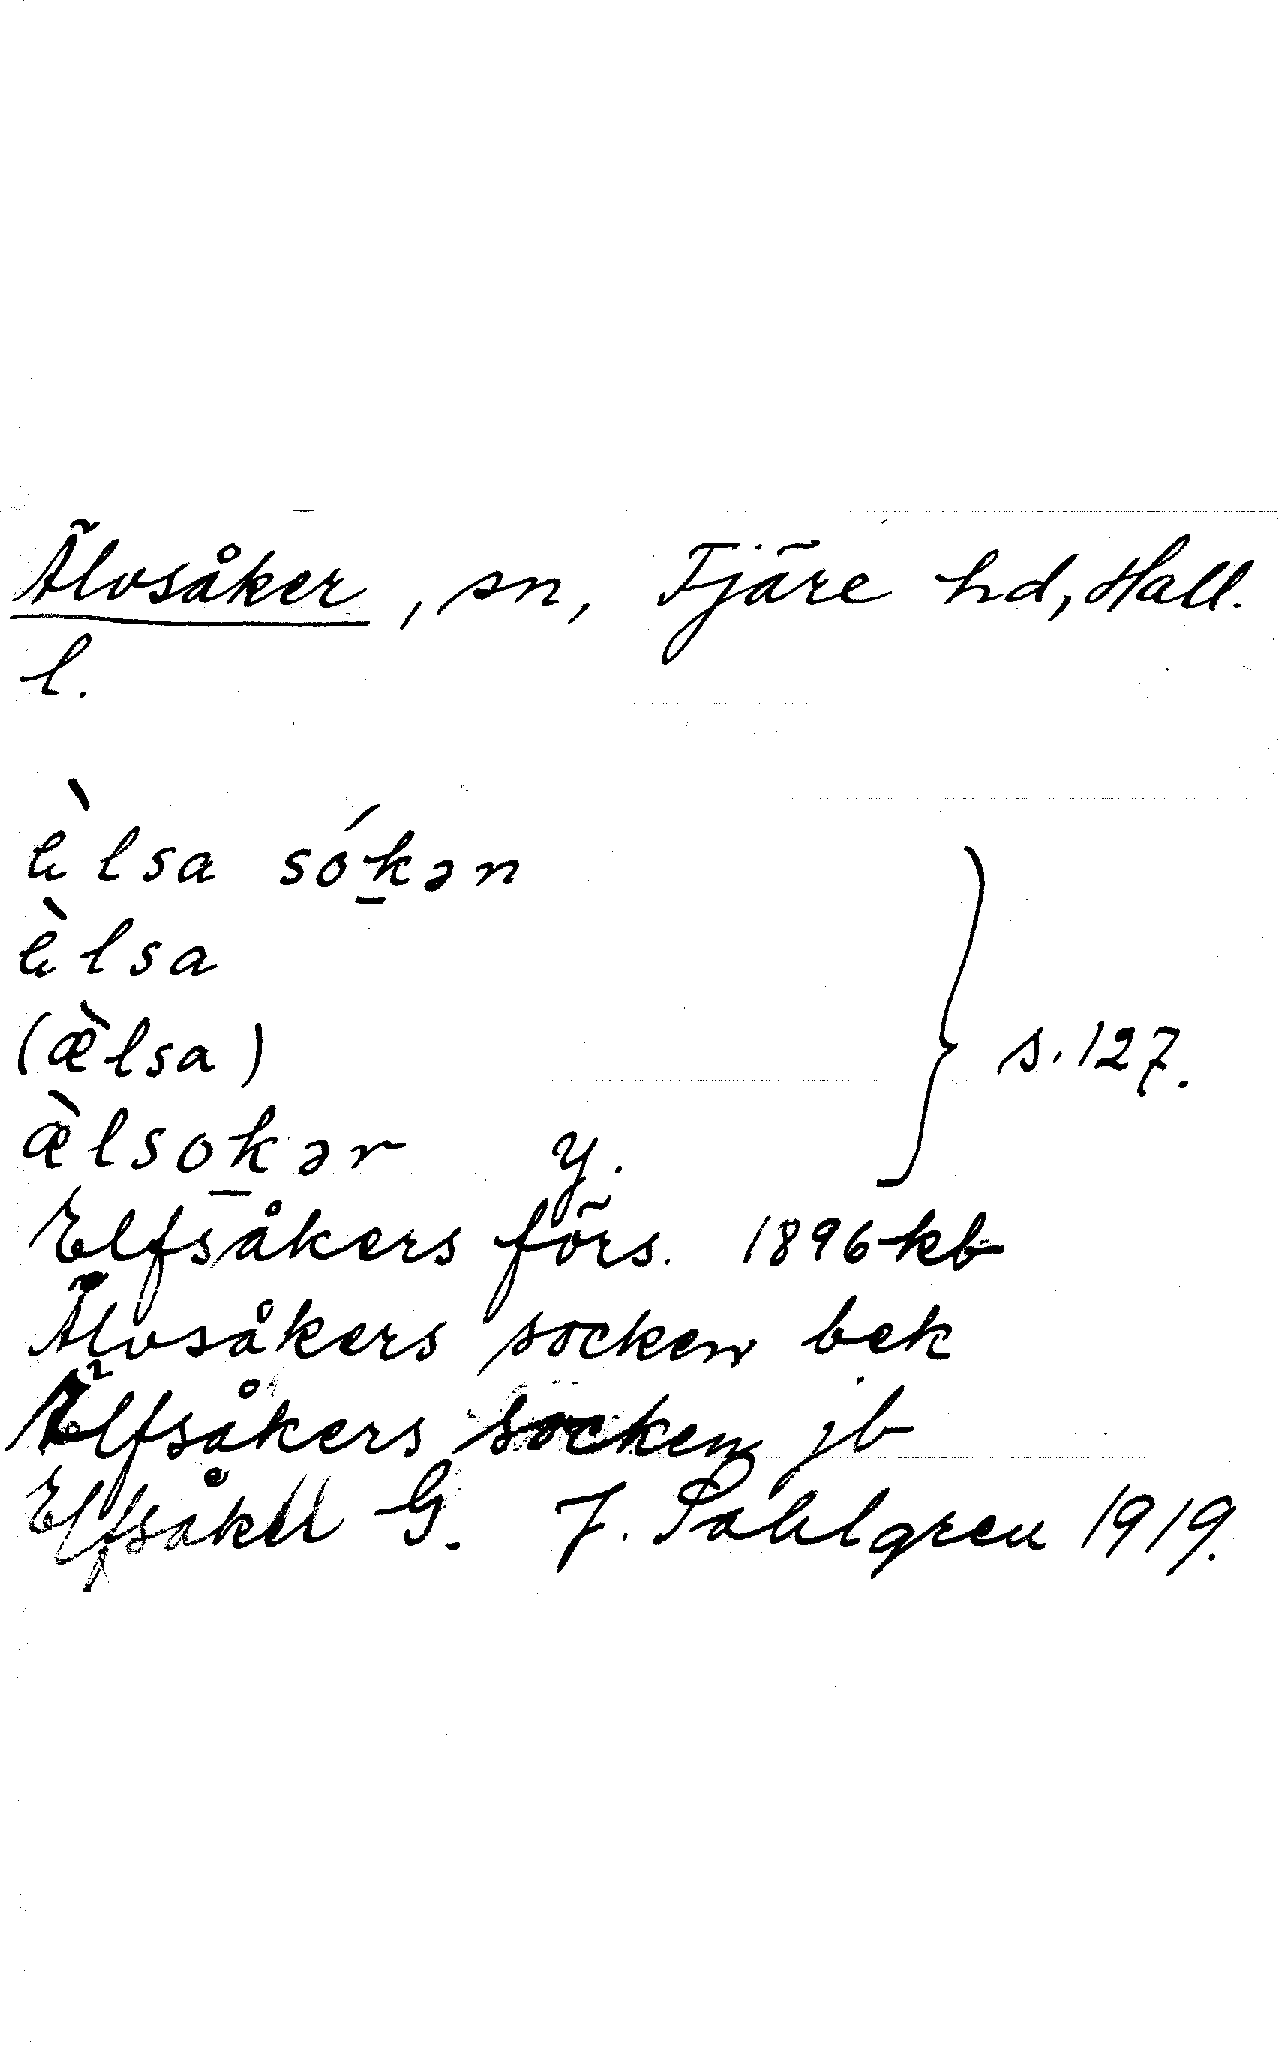 Älvsåker, sn, Fjäre hd, Hall.
l.
è̀lsa sók̲ən
è̀lsa
(æ̀lsa)
s. 127.
æ̀lsok̲ər y.
Elfsåkers förs. 1896 kb
Älvsåkers socken bek
Elfsåkers socken jb
Elfsåker G. J. Sahlgren 1919.